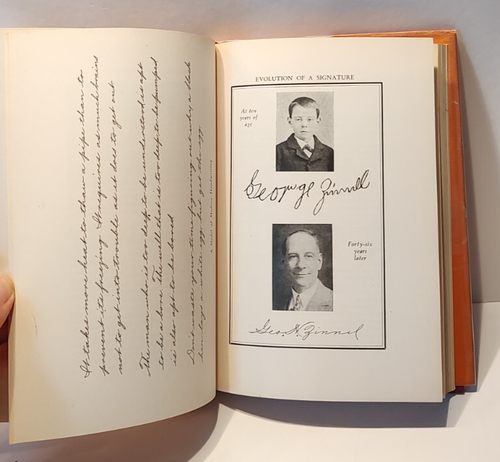 It takes more heat to thaw a pipe than to
prevent its freezing. It requires as much brains
not to get into trouble as it does to get out
The man who is too deep to be understood is apt
to be a bore. The well that is too deep to be pumped
is also apt to be
Don't waste your time figuring out why a black
hen lays a white egg - but get the egg.
EVOLUTION OF A SIGNATURE
At ten
years of
age
George Zinnell
Forty-six
years
later
Geo. N. Zinnel